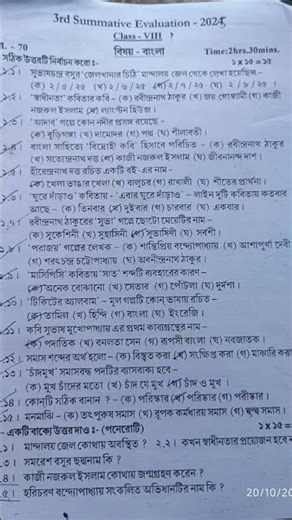 3rd Summative Evaluation - 2024
Class - VIII
M. - 70 বিষয় - বাংলা Time:2hrs.30mins.
সঠিক উত্তরটি নির্বাচন করো :- ১ x ১৫ = ১৫
১.১। সুভাষচন্দ্র বসুর 'জেলখানার চিঠি' মান্দালয় জেল থেকে লেখা হয়েছিল -
(ক) ২/৫/২৫ (খ) ২/৬/২৫ (গ) ২/৭/২৫ (ঘ) ২/৮/২৫।
১.২। 'স্বাধীনতা' কবিতার কবি - (ক) রবীন্দ্রনাথ ঠাকুর (খ) জয় গোস্বামী (গ) কাজী
নজরুল ইসলাম (ঘ) ল্যাংস্টন হিউজ।
১.৩। 'আদাব' গল্পে কোন নদীর প্রসঙ্গ রয়েছে -
(ক) বুড়িগঙ্গা (খ) দামোদর (গ) পদ্মা (ঘ) শীলাবতী।
১.৪। বাংলা সাহিত্যে 'বিদ্রোহী কবি' হিসাবে পরিচিত - (ক) রবীন্দ্রনাথ ঠাকুর
(খ) সত্যেন্দ্রনাথ দত্ত (গ) কাজী নজরুল ইসলাম (ঘ) জীবনানন্দ দাশ।
১.৫। হীরেন্দ্রনাথ দত্ত রচিত একটি বই-এর নাম -
(ক) খেলা ভাঙার খেলা (খ) বালুচর (গ) রাখালী (ঘ) শীতের প্রার্থনা।
১.৬। 'ঘুরে দাঁড়াও' কবিতায় - 'এবার ঘুরে দাঁড়াও' - লাইন দুটি কবিতায় কতবার
আছে - (ক) তিনবার (খ) দুইবার (গ) চারবার (ঘ) একবার।
১.৭। রবীন্দ্রনাথ ঠাকুরের 'সুভা' গল্পে ছোটো মেয়েটির নাম -
(ক) সুকেশিনী (খ) সুহাসিনী (গ) সুভাষিণী (ঘ) সর্বশী।
১.৮। 'পরাজয়' গল্পের লেখক - (ক) শান্তিপ্রিয় বন্দ্যোপাধ্যায় (খ) আশাপূর্ণা দেবী
(গ) শরৎচন্দ্র চট্টোপাধ্যায় (ঘ) অবনীন্দ্রনাথ ঠাকুর।
১.৯। 'মাসিপিসি' কবিতায় 'সাত' শব্দটি ব্যবহারের কারণ -
(ক) অনেক বোঝানো (খ) সেতার (গ) পোঁটলা (ঘ) দুর্দশা।
১.১০। 'টিকিটের অ্যালবাম' - মূল গল্পটি কোন্ ভাষায় রচিত -
(ক) তামিল (খ) হিন্দি (গ) বাংলা (ঘ) ইংরেজি।
১.১১। কবি সুভাষ মুখোপাধ্যায় এর প্রথম কাব্যগ্রন্থের নাম -
(ক) পদাতিক (খ) বনলতা সেন (গ) রূপসী বাংলা (ঘ) নবজাতক।
১.১২। সমাস শব্দের অর্থ হলো - (ক) বিস্তৃত করা (খ) সংক্ষিপ্ত করা (গ) মাঝারি করা
১.১৩। 'চাঁদমুখ' সমাসবদ্ধ পদটির ব্যাসবাক্য হবে -
(ক) মুখ চাঁদের মতো (খ) চাঁদ যে মুখ (গ) চাঁদ ও মুখ।
১.১৪। কোন্‌টি সঠিক বানান ? - (ক) পরিস্কার (খ) পরিষ্কার (গ) পরীস্কার।
১.১৫। মনমাঝি - (ক) তৎপুরুষ সমাস (খ) রূপক কর্মধারয় সমাস (গ) দ্বন্দ্ব সমাস।
একটি বাক্যে উত্তর দাও :- (পনেরোটি) ১ x ১৫ =
১। মান্দালয় জেল কোথায় অবস্থিত ? ২.২। কখন স্বাধীনতার প্রয়োজন হবে
৩। সমরেশ বসুর ছদ্মনাম কি ?
৪। কাজী নজরুল ইসলাম কোথায় জন্মগ্রহণ করেন ?
৫। হরিচরণ বন্দ্যোপাধ্যায় সংকলিত অভিধানটির নাম কি ?
20/10/20